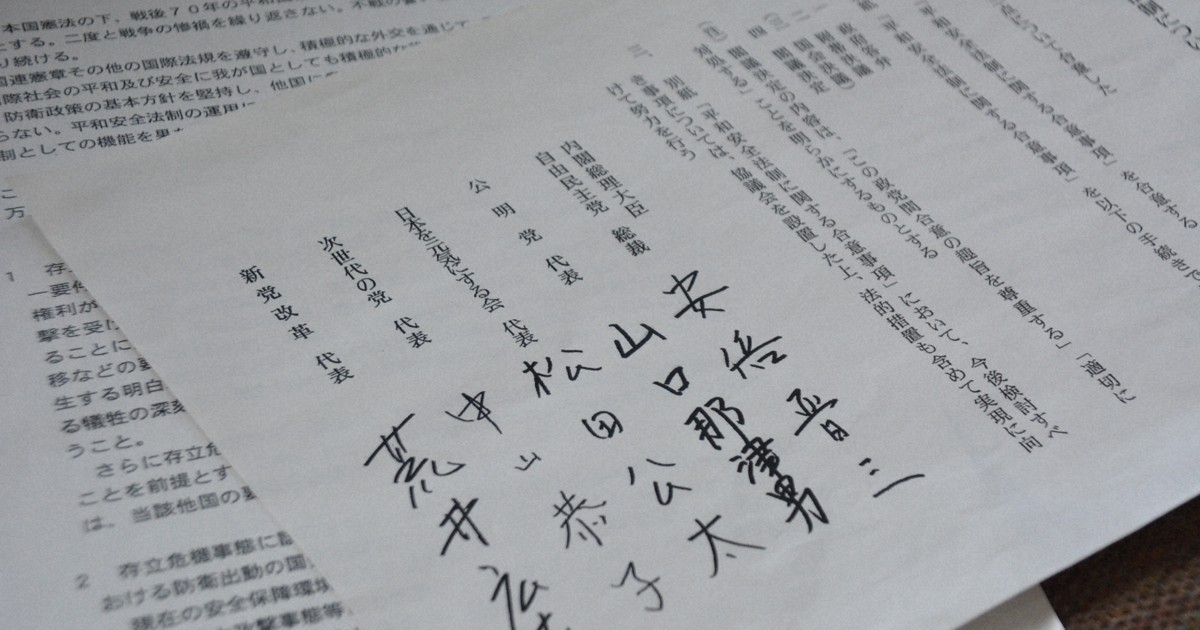 本国憲法の下、戦後70年の平和国
とする。二度と戦争の惨禍を繰り返さない。不戦の
り続ける。
国連憲章その他の国際法規を遵守し、積極的な外交を通じて
国際社会の平和及び安全に我が国としても積極的
防衛政策の基本方針を堅持し、他国に
らない。平和安全法制の運用に
制としての機能を
1 存
一要件
権利が
撃を受け
ることに
移などの要
生する明白
る犠牲の深刻
うこと。
さらに存立危
ことを前提とす
は、当該他国の要
2 存立危機事態に
おける防衛出動の国
現在の安全保障環境
攻撃事態等
について合意した
「平和安全法制に関する合意事項」を合意する
「平和安全法制に関する合意事項」を以下の手続き
政府答弁
附帯決議
国会決議
閣議決定
閣議決定の内容は、「この政党間合意の趣旨を尊重する」「適切に
対処する」ことを明らかにするものとする
三、別紙「平和安全法制に関する合意事項」において、今後検討すべ
き事項については、協議会を設置した上、法的措置も含めて実現に向
けて努力を行う
内閣総理大臣
自由民主党 総裁 安倍晋三
公明党 代表 山口那津男
日本を元気にする会 代表 松田公太
次世代の党 代表 中山恭子
新党改革 代表 荒井広